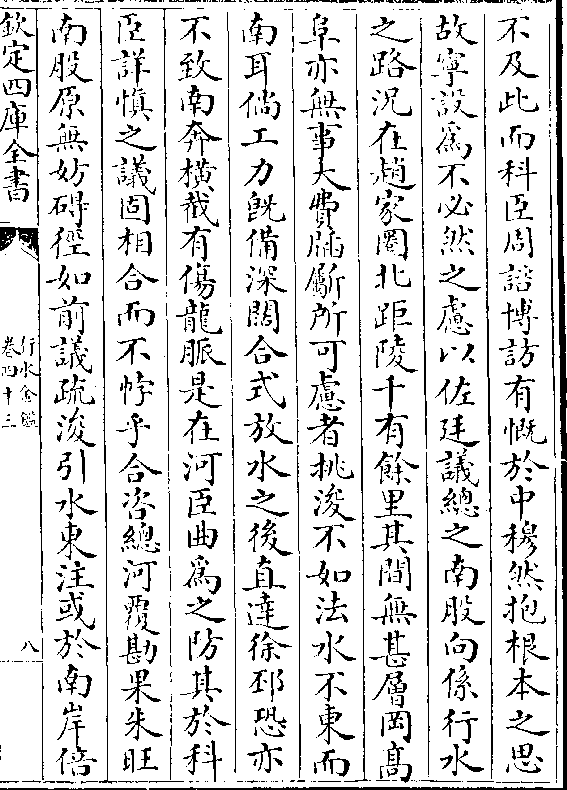 不及此而科臣周諮博訪有慨於中穆然抱根本之思
故寧設爲不必然之慮以佐廷議總之南股向係行水
之路況在趙家圏北距陵千有餘里其間無甚層岡髙
阜亦無事大費斸所可慮者挑浚不如法水不東而
南耳倘工力既備深闊合式放水之後直達徐邳恐亦
不致南奔橫截有傷龍脈是在河臣曲爲之防其於科
臣詳慎之議固相合而不悖乎合咨總河覆勘果朱旺
南股原無妨碍徑如前議疏浚引水東注或於南岸倍
欽定四庫全書
行水金鑑
卷四十三
八